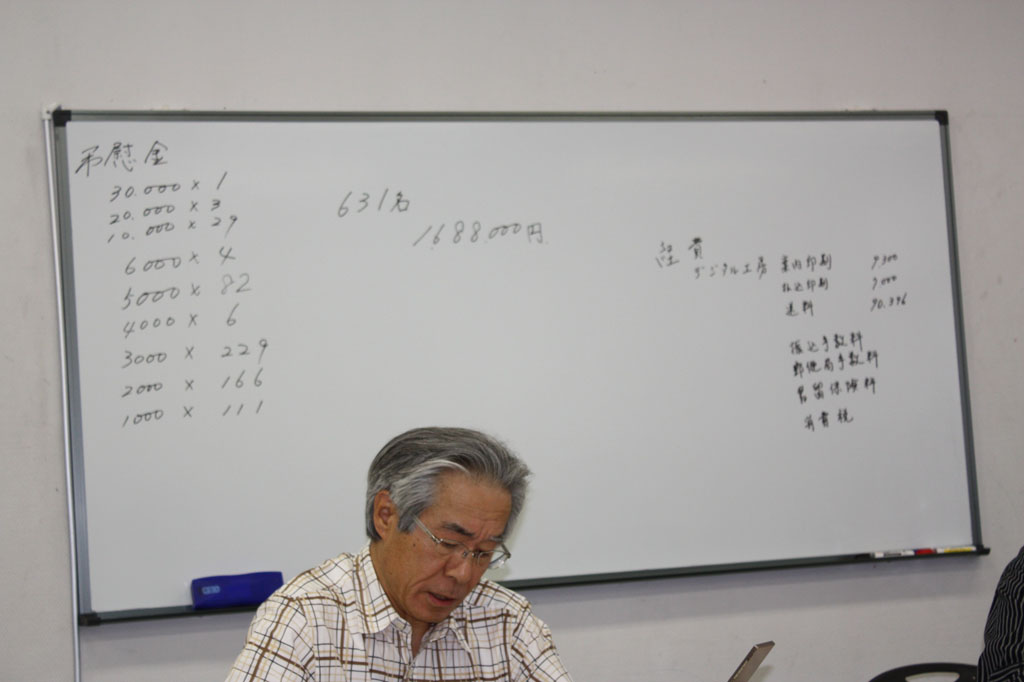 弔慰金
30.000 × 1
20.000 × 3
10.000 × 29
6000 × 4
5000 × 82
4000 × 6
3000 × 229
2000 × 166
1000 × 111
631名
1.688.000円
経費
デジタル工房 案内印刷 9300
振込印刷 9000
送料 90.396
振込手数料
郵便局手数料
書留保険料
消費税